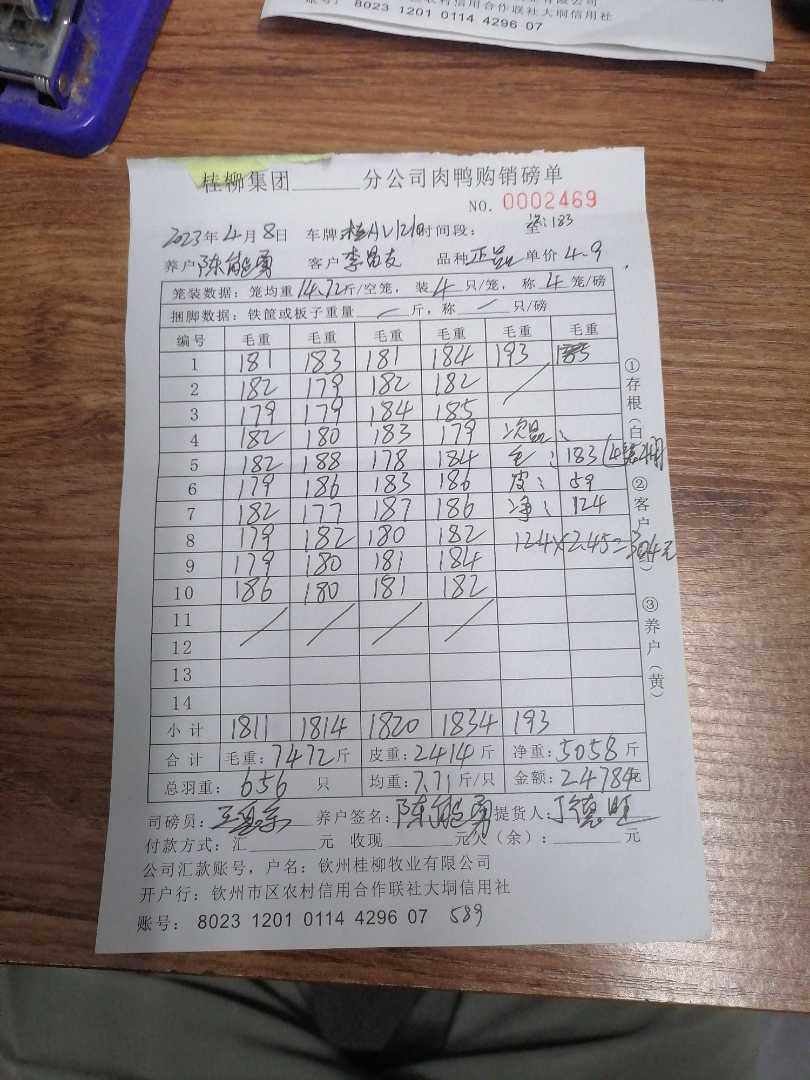 农村信用合作联社大垌信用社
账号: 8023 1201 0114 4296 07
桂柳集团______分公司肉鸭购销磅单
NO. 0002469
2023年4月8日 车牌 时间段: 至:183
养户 陈能勇 客户 李昌友 品种 正品 单价 4.9
笼装数据: 笼均重 14.72 斤/空笼, 装 4 只/笼, 称 4 笼/磅
捆脚数据: 铁筐或板子重量 / 斤, 称 / 只/磅
编号 毛重 毛重 毛重 毛重 毛重 毛重
1 181 183 181 184 193
2 182 179 182 182 /
3 179 179 184 185
4 182 180 183 179 次品:
5 182 188 178 184 毛: 183
6 179 186 183 186 皮: 59
7 182 177 187 186 净: 124
8 179 182 180 182 124×2.45=304元
9 179 180 181 184
10 186 180 181 182
11 / / / /
12
13
14
小计 1811 1814 1820 1834 193
合计 毛重: 7472 斤 皮重: 2414 斤 净重: 5058 斤
总羽重: 656 只 均重: 7.71 斤/只 金额: 24784元
司磅员: 养户签名: 陈能勇 提货人: 丁德旺
付款方式: 汇______元 收现______元欠(余): ______元
公司汇款账号, 户名: 钦州桂柳牧业有限公司
开户行: 钦州市区农村信用合作联社大垌信用社
账号: 8023 1201 0114 4296 07 589
①存根(白
②客户
③养户(黄)